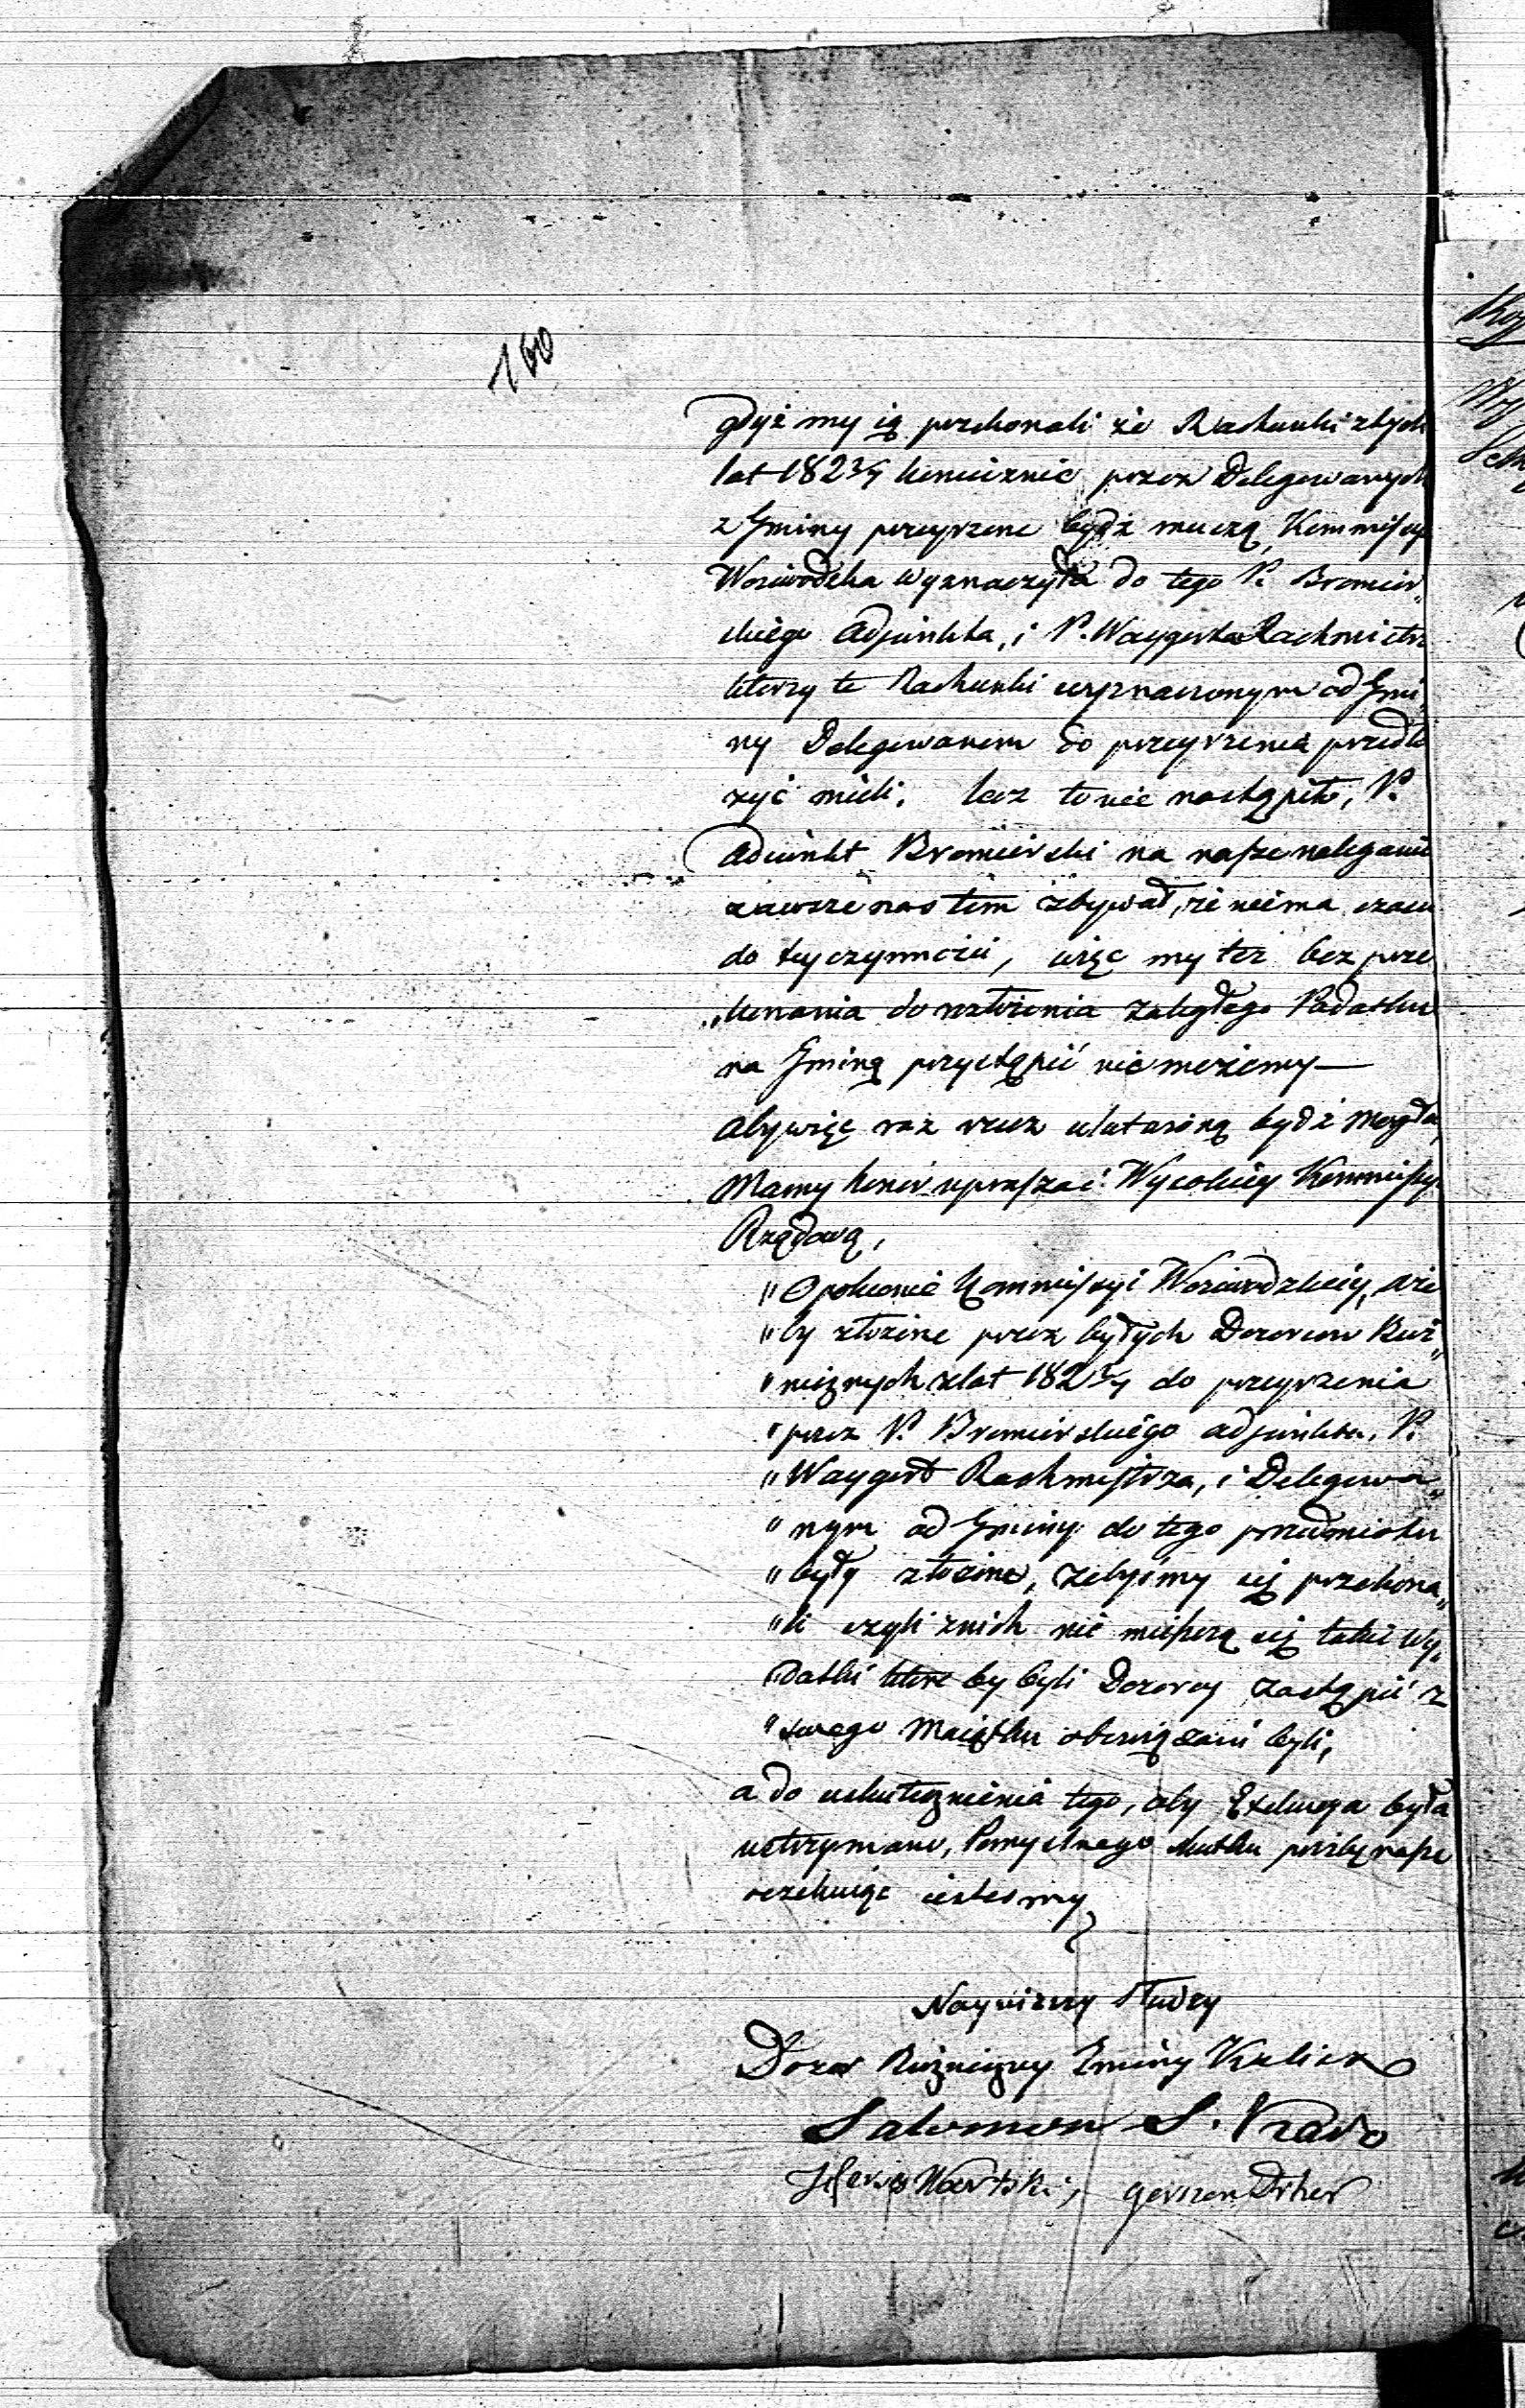 160
gdyż my ią przekonali że Rachunki z tych
lat 182¾ koniecznie przez Delegowanych
z Gminy przeyrzene bydź muszą, Kommissya
Woiewodzka wyznaczyła do tego P. Bromier„
skiego Adjunkta, i P. Waygerta Rachmistrz
którzy te Rachunki wyznaczonym od Gmi
ny Delegowanem do przeyrzenia przedło
żyć mieli. lecz to nie nastąpiło, P.
Adiunkt Bromierski na nasze naleganie
zawsze nas tem zbywał, że niema czasu
do tey czynności, więc my też bez prze
„konania do rozłożenia zaległego Podatku
na Gminą przystąpić nie możemy —
Aby więc raz rzecz ułatwioną bydź mogła,
Mamy honor upraszać Wysokiey Kommissyi
Rządową,
„O polecenie Kommissyi Woiewodzkiey, aże
„by złożone przez byłych Dozorców Buż„
„nicznych z lat 182¾ do przeyrzenia
„przez P. Bromierskiego adjunkta, P.
„Waygert Rachmistrza, i Delegowa„
„nym od Gminy do tego przedmiotu
„były złożone, żebyśmy się przekona„
„li czyli z nich nie mieszczą się takie Wy„
Datki które by byli Dozorcy zastąpić z
„swego Maiątku obowiązani byli,
a do uskutecznienia tego, aby Exekucya była
wstrzymano, Pomyślnego skutku prośby nasze
oczekuiąc iestesmy
Nayniższy Słudzy
Dozór Bużniczny Gminy Kalisza
Salomon S. Prado
Hersz Wartski, Gerson Drher